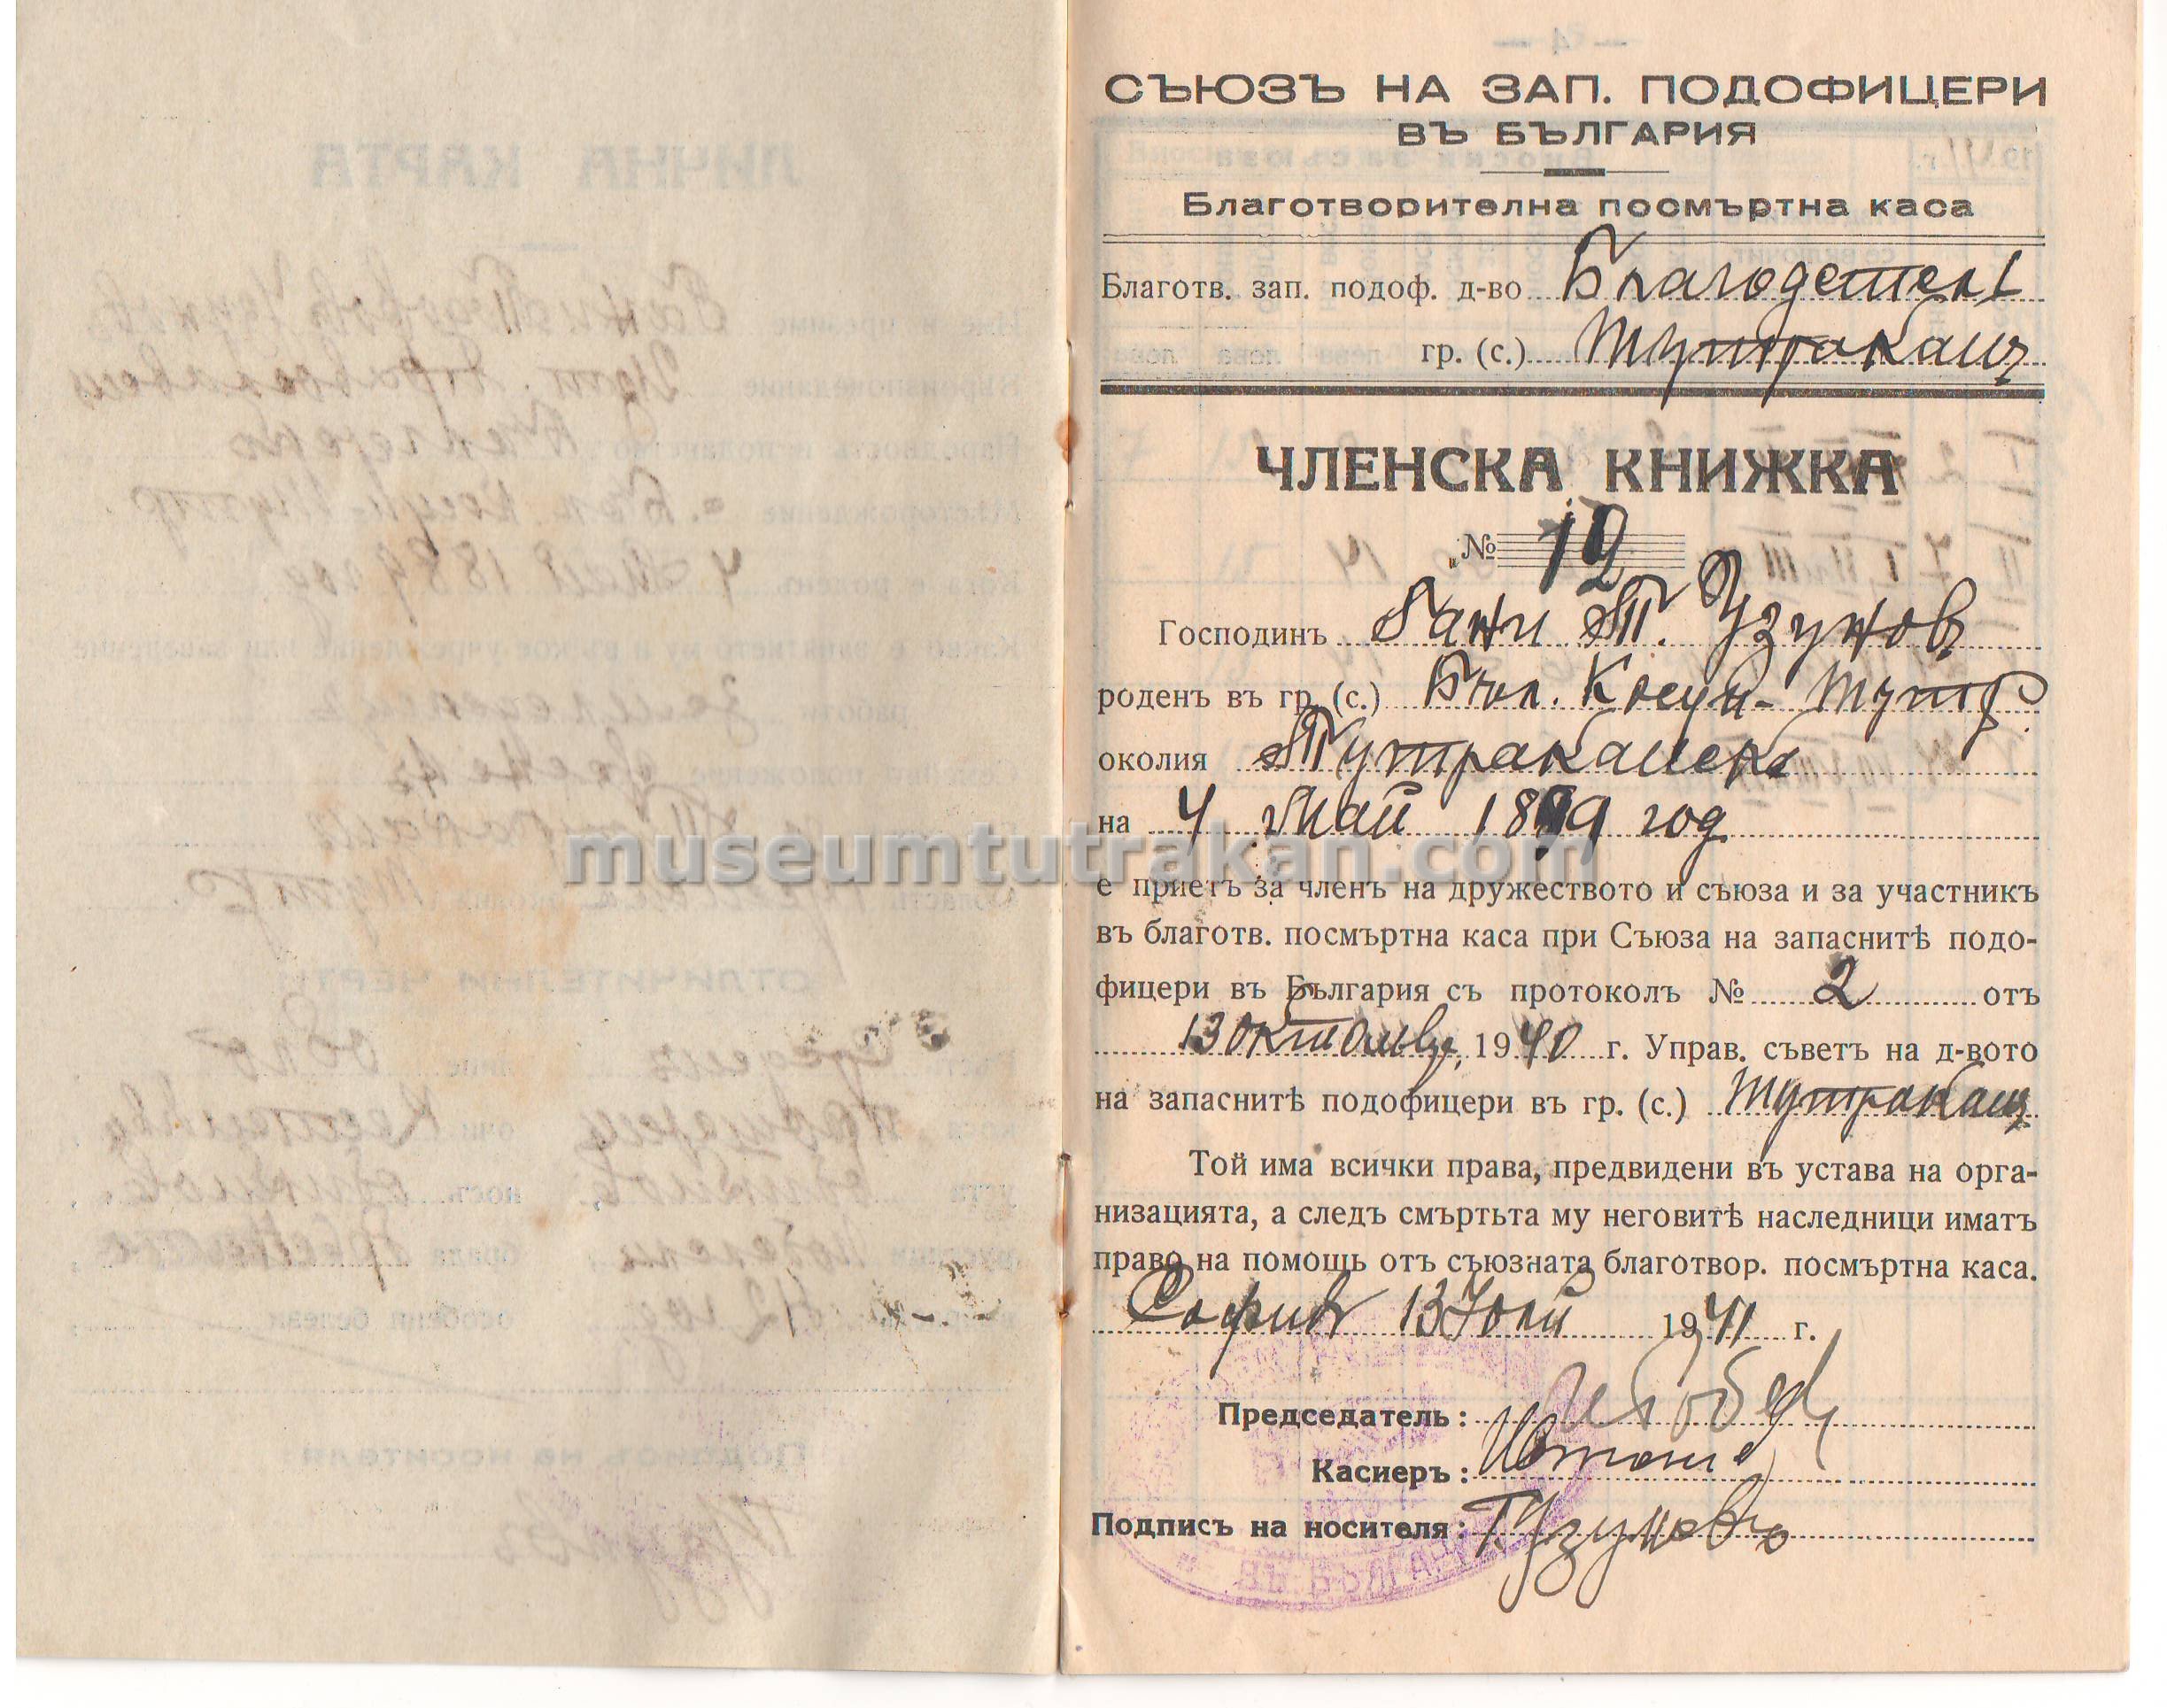 СЪЮЗЪ НА ЗАП. ПОДОФИЦЕРИ
ВЪ БЪЛГАРИЯ
Благотворителна посмъртна каса
Благотв. зап. подоф. д-во Благодетель
гр. (с.) Тутраканъ
ЧЛЕНСКА КНИЖКА
№ 12
Господинъ Гани Т. Узуновъ
роденъ въ гр. (с.) Бъл. Косуй - Тутр.
околия Тутраканска
на 4 Май 1899 год
museumtutrakan.com
е приетъ за членъ на дружеството и съюза и за участникъ
въ благотв. посмъртна каса при Съюза на запаснитѣ подо-
фицери въ България съ протоколъ № 2 отъ
13 октомвр. 1940 г. Управ. съветъ на д-вото
на запаснитѣ подофицери въ гр. (с.) Тутраканъ
Той има всички права, предвидени въ устава на орга-
низацията, а следъ смъртьта му неговитѣ наследници иматъ
право на помощь отъ съюзната благотвор. посмъртна каса.
София 13 Юлй 1941 г.
Председатель:
Касиеръ:
Подписъ на носителя: Г. Узуновъ
ВЪ БЪЛГАРИЯ